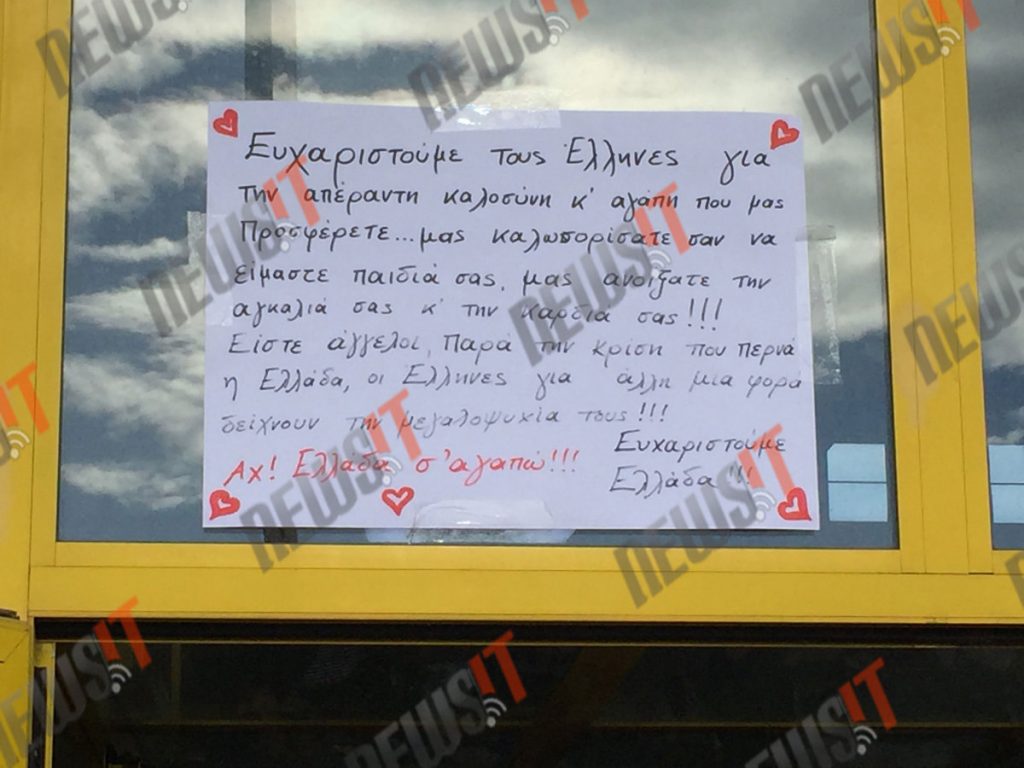 Ευχαριστούμε τους Έλληνες για
την απέραντη καλοσύνη κ' αγάπη που μας
Προσφέρετε... μας καλωσορίσατε σαν να
είμαστε παιδιά σας, μας ανοίξατε την
αγκαλιά σας κ' την καρδιά σας!!!
Είστε άγγελοι, Παρά την κρίση που περνά
η Ελλάδα, οι Έλληνες για άλλη μια φορά
δείχνουν την μεγαλοψυχία τους!!!
Ευχαριστούμε
Ελλάδα!!!
Αχ! Ελλάδα σ'αγαπώ!!!
NEWSIT
NEWSIT
NEWSIT
NEWSIT
NEWSIT
NEWSIT
NEWSIT
NEWSIT
NEWSIT
NEWSIT
NEWSIT